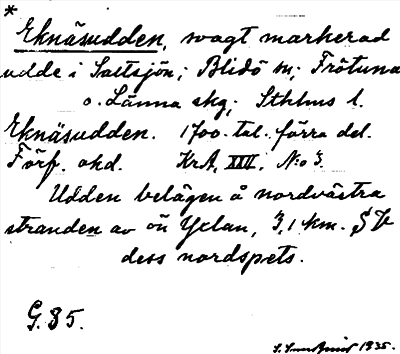 *
Eknäsudden, svagt markerad
udde i Saltsjön; Blidö sn; Frötuna
o. Länna skg; Sthlms l.
Eknäsudden. 1700-tal. förra del.
Förf. okd. KrA, XXII, No 3.
Udden belägen å nordvästra
stranden av ön Yxlan, 3,1 km. SV
dess nordspets.
G. 35.
1935.